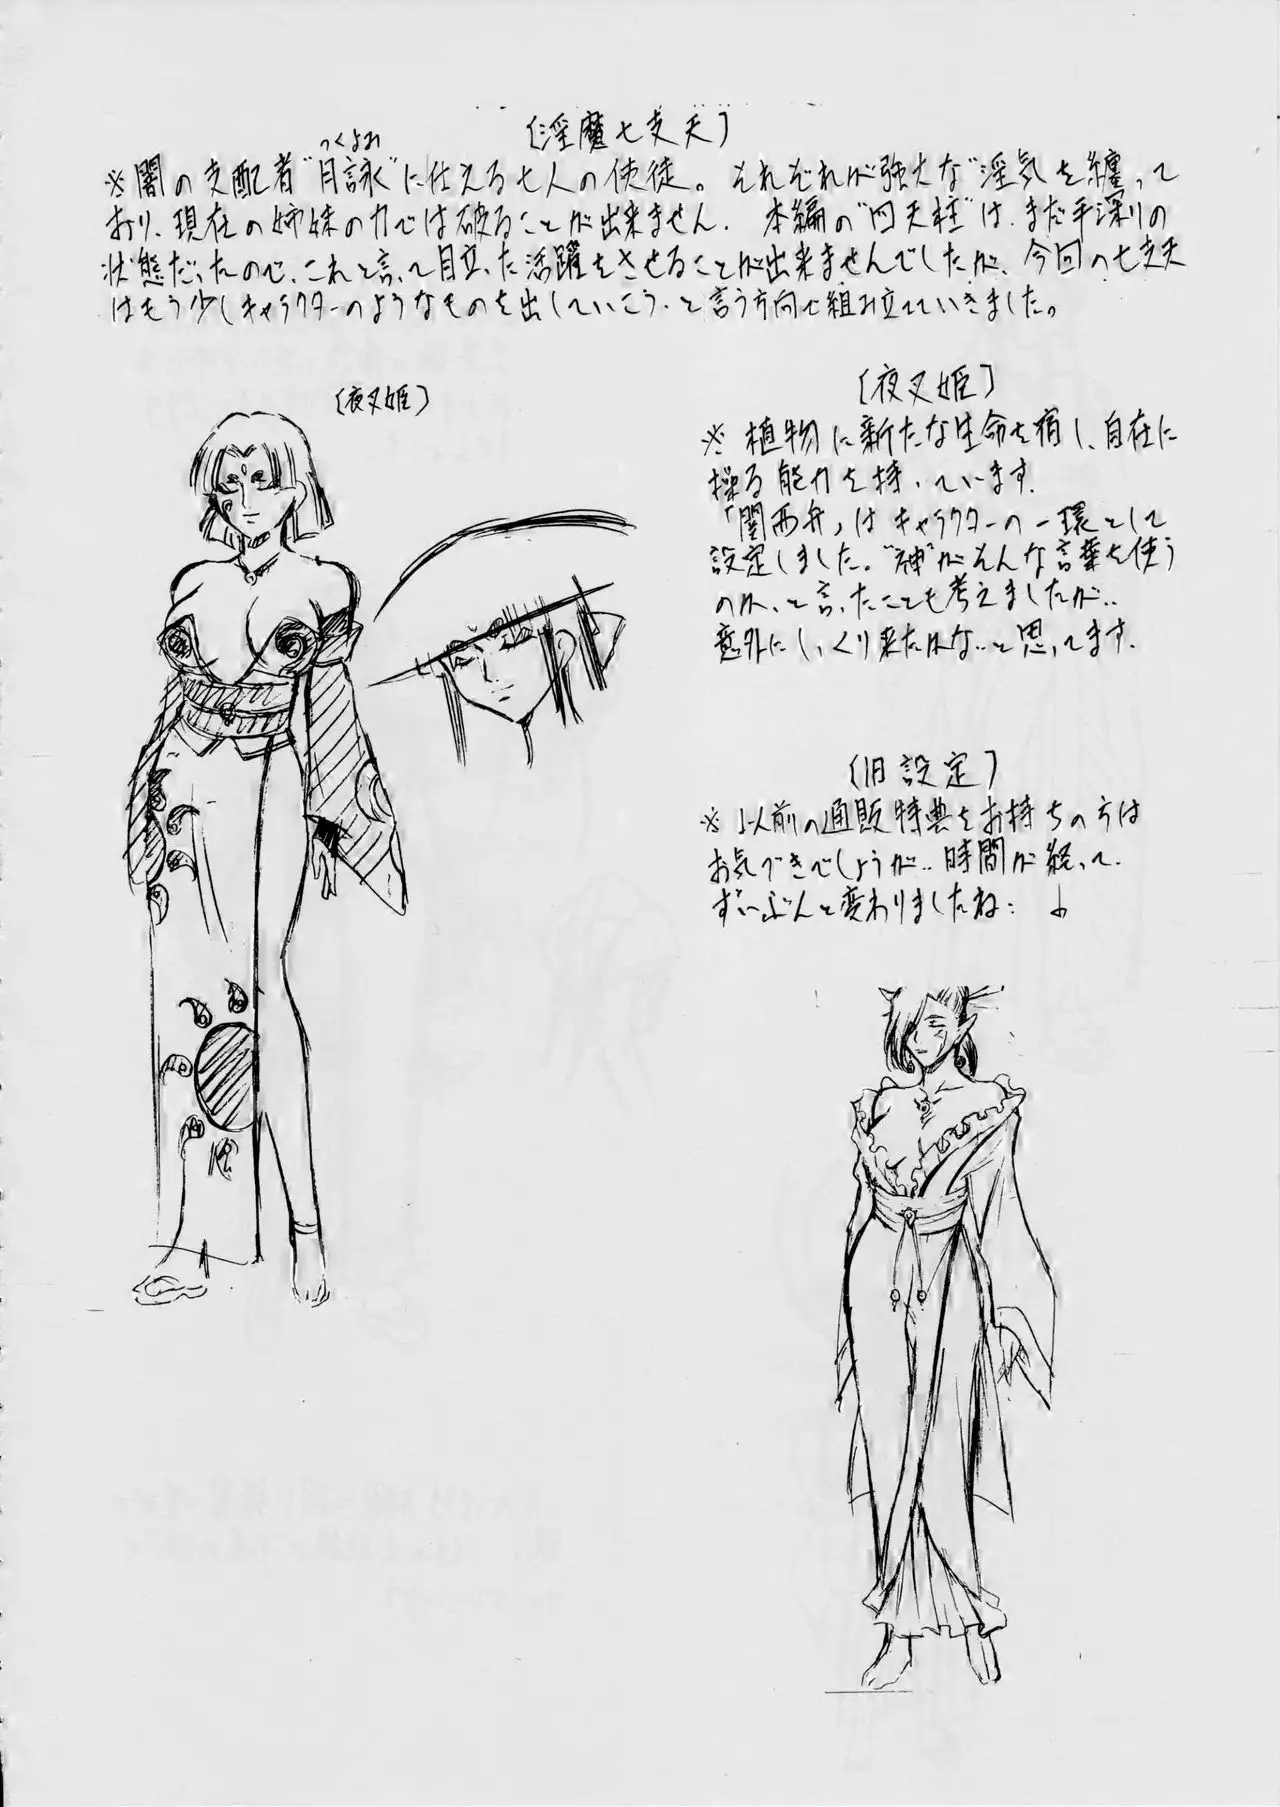 〔淫魔七支天〕
つくよみ
※闇の支配者"月詠"に仕える七人の使徒。それぞれが強大な"淫気"を纏って
おり、現在の姉妹の力では破ることが出来ません。本編の"四天柱"は、まだ手深りの
状態だったので、これと言って目立った活躍をさせることが出来ませんでしたが、今回の七支天
はもう少しキャラクターのようなものを出していこう、と言う方向で組み立てていきました。
〔夜叉姫〕
〔夜叉姫〕
※植物に新たな生命を宿し、自在に
操る能力を持っています。
「関西弁」はキャラクターの一環として
設定しました。"神"がそんな言葉を使う
のか、と言ったことも考えましたが‥
意外にしっくり来たかな‥と思ってます。
〔旧設定〕
※以前の通販特典をお持ちの方は
お気づきでしょうが‥時間が経って
ずいぶんと変わりましたね‥